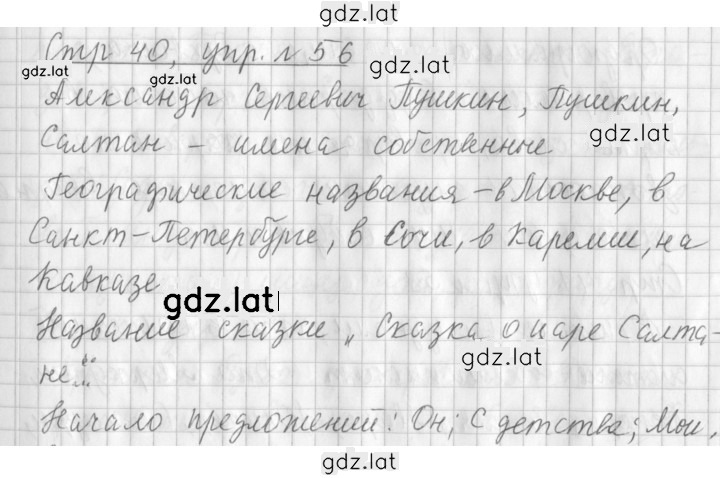 gdz.lat
Стр 40, упр. № 56
gdz.lat gdz.lat gdz.lat
Александр Сергеевич Пушкин, Пушкин,
gdz.lat
Салтан - имена собственные
Географические названия - в Москве, в
Санкт-Петербурге, в Сочи, в Карелии, на
Кавказе
gdz.lat
Название сказки „Сказка о царе Салта-
gdz.lat
не..."
Начало предложений: Он; С детства; Мои,
gdz.lat